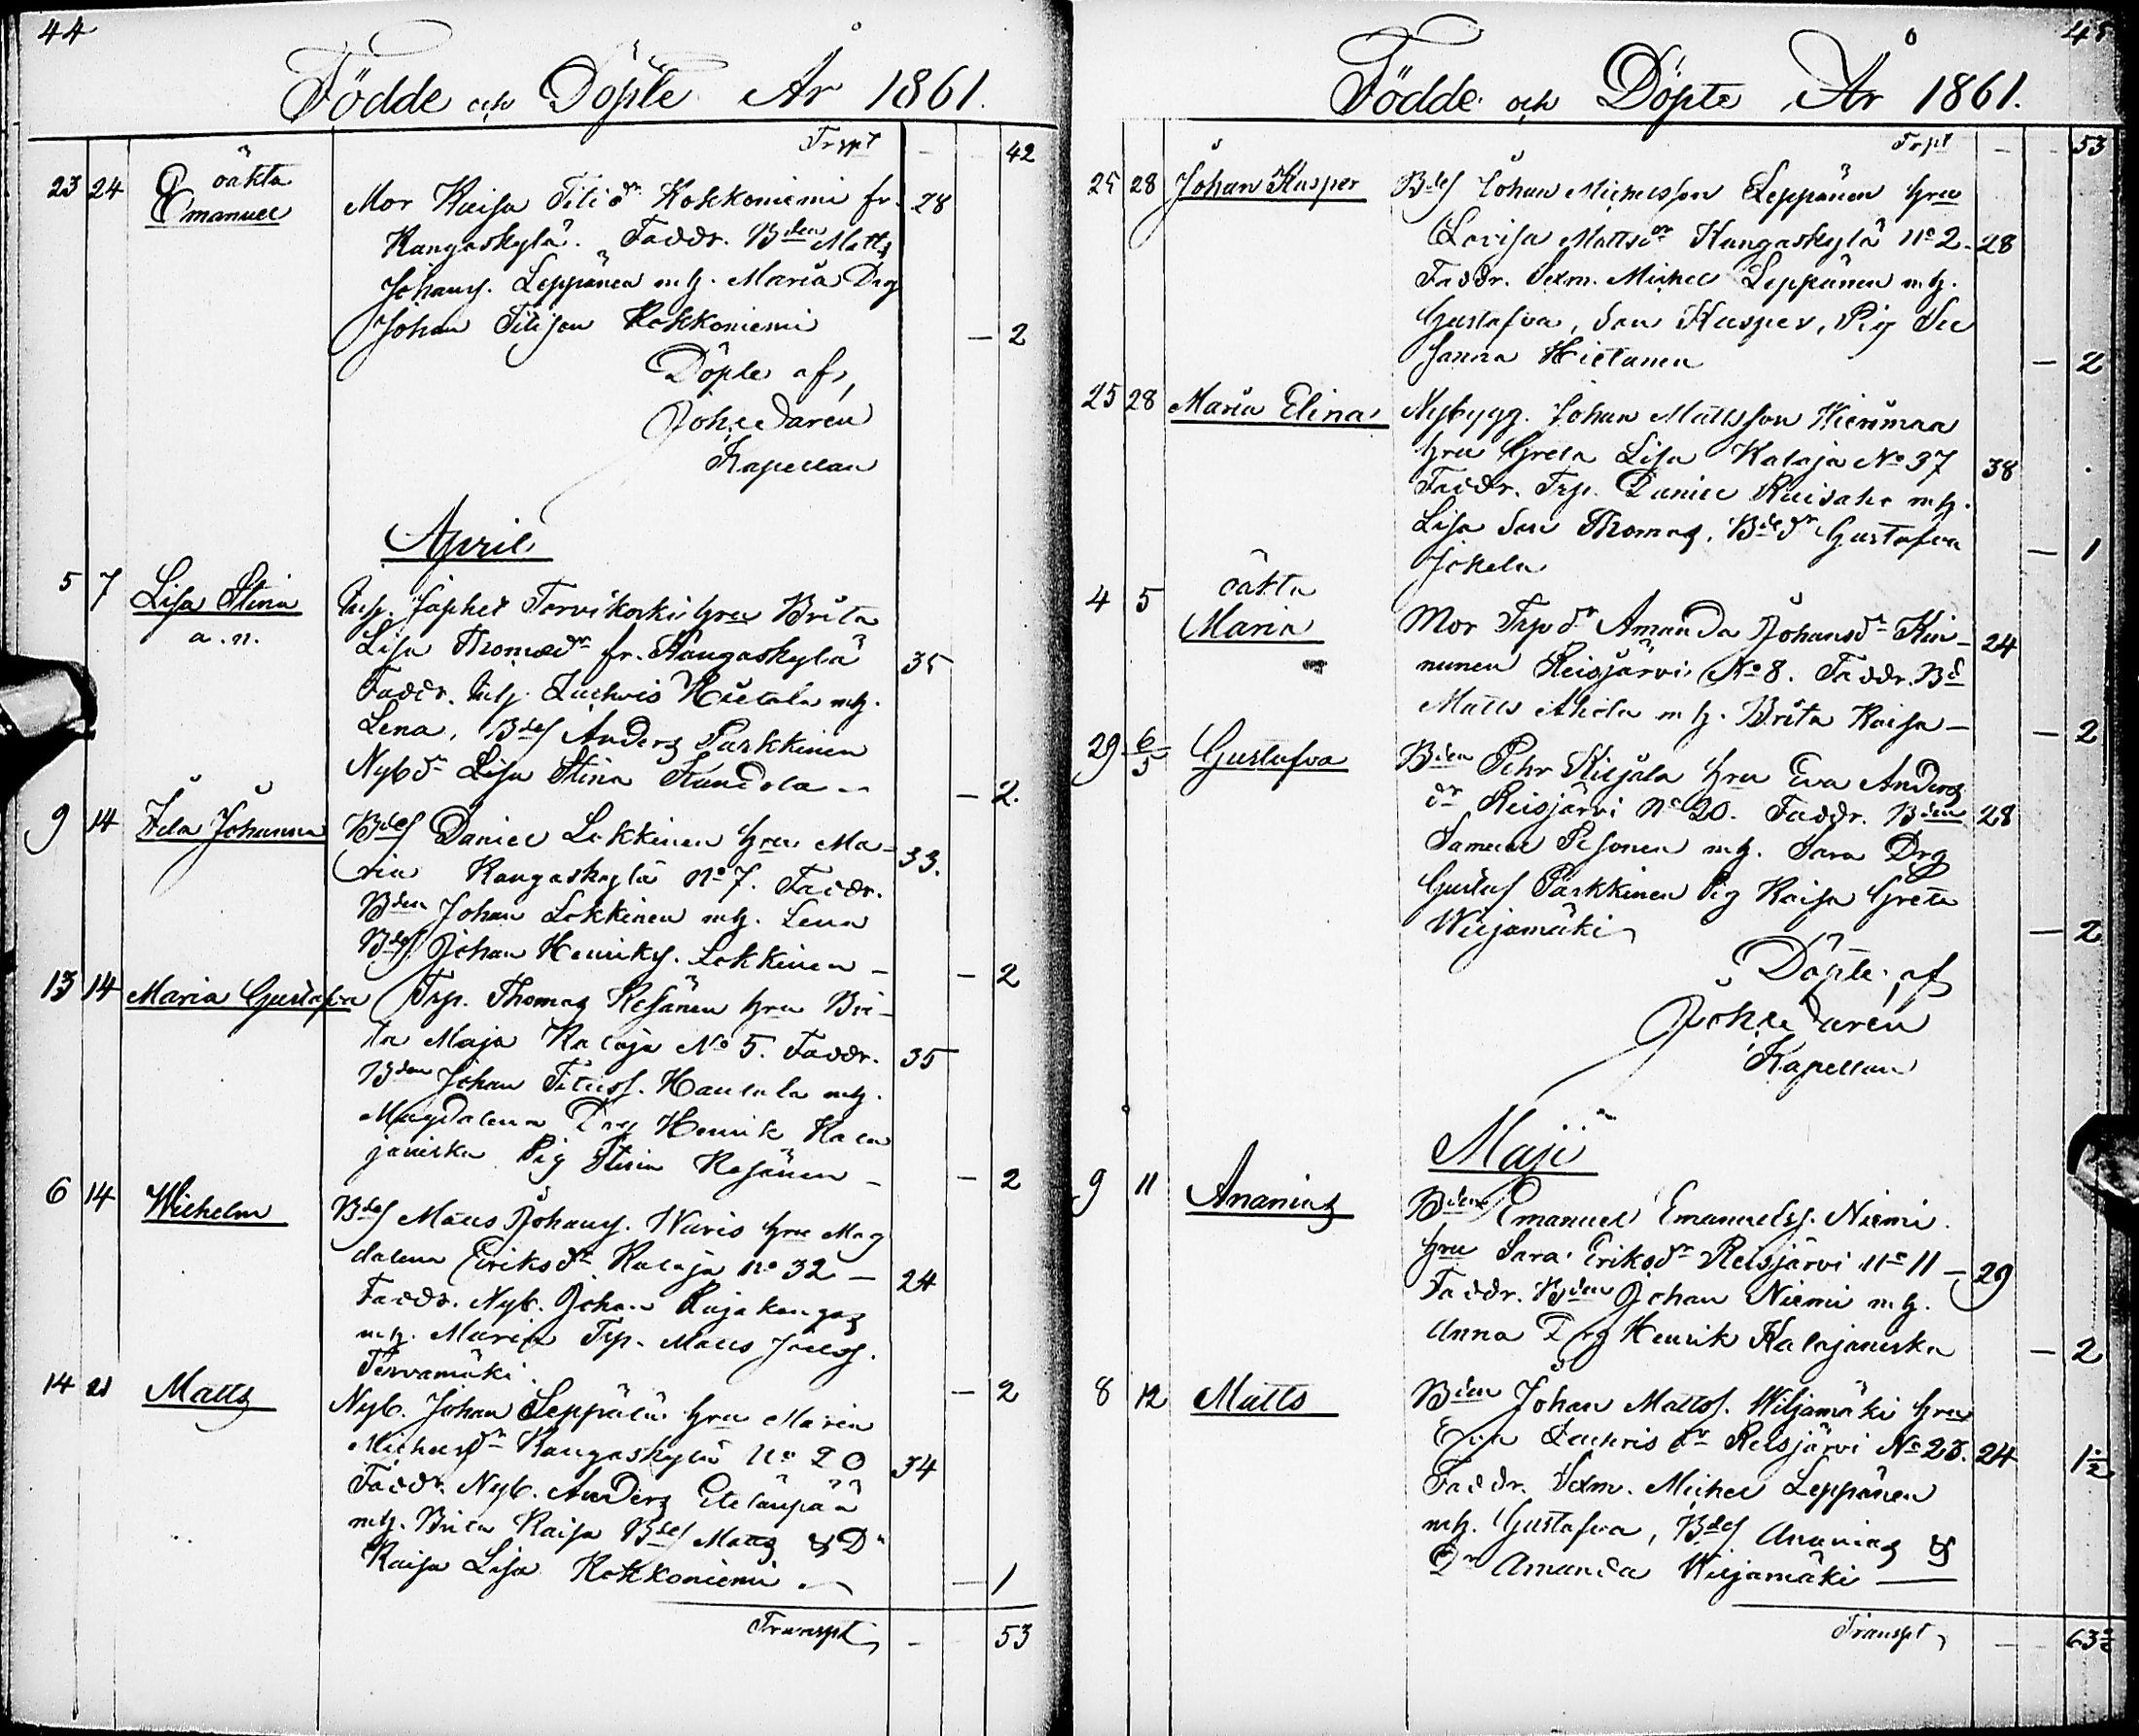 44
Födde och Döpte År 1861.
Trspt - - 42
23 24 oäkta Emanuel
Mor Kaisa Filipdr Kokkoniemi fr. 28
Kangaskylä. Faddr. Bden Matts
Johanss. Leppänen m.h. Maria Drg
Johan Filipson Kokkoniemi — 2
Döpte af,
Joh: Edarén
Kapellan
April
5 7 Lisa Stina
a.n.
Inh. Japhet Torvikoski hru Brita
Lisa Thomædr fr. Kangaskylä 35
Faddr. Inh. Zachris Hietala m.h.
Lena, Bdes Anders Parkkinen
Nybdr Lisa Stina Kandola — 2.
9 14 Ida Johanna
Bdes Daniel Lokkinen hru Ma- 33.
ria Kangaskylä No 7. Faddr.
Bden Johan Lokkinen m.h. Lena
Bdes Johan Henriks. Lokkinen — 2
13 14 Maria Gustafva
Trp. Thomas Kesänen hru Bri-
ta Maja Kalaja No 5. Faddr. 35
Bden Johan Tituss. Hautala m.h.
Magdalena Drg Henrik Kala
janiska Pig Stina Kesänen — 2
6 14 Wilhelm
Bdes Matts Johanss. Waris hru Mag
dalena Eriksdr Kalaja No 32 — 24
Faddr. Nyb. Johan Rajakangas
m.h. Maria Trp. Matts Joelss.
Tervamäki. — 2
14 21 Matts
Nyb. Johan Leppälä hru Maria
Michelsdr Kangaskylä No 20 34
Faddr. Nyb. Anders Eteläupää
m.h. Brita Kaisa Bdes Matts & Dr
Kaisa Lisa Kokkoniemi. — 1
Transpt - 53
45
Födde och Döpte År 1861.
Trpt - - 53
25 28 Johan Kasper
Bdes Johan Michelsson Leppänen hru
Lovisa Mattsdr Kangaskylä No 2. 28
Faddr. Sexm. Michel Leppänen m.h.
Gustafva, Son Kasper, Pig Su
sanna Hietanen — 2
25 28 Maria Elina
Nybygg. Johan Mattsson Hiersmaa
hru Greta Lisa Kalaja No 37 38
Faddr. Trp. Daniel Ruisaho m.h.
Lisa Son Thomas, Bdedr Gustafva
Jokela — 1
4 5 oäkta
Maria
Mor Trpdr Amanda Johansdr Kin- 24
nunen Reisjärvi No 8. Faddr. Bd
Matts Ahola m.h. Brita Kaisa — 2
29 6/5 Gustafva
Bden Pehr Kiljala hru Eva Anders
dr Reisjärvi No 20. Faddr. Bden 28
Samuel Pesonen m.h. Sara Drg
Gustaf Parkkinen Pig Kaisa Greta
Wiljamäki — 2
Döpte af
Joh: Edarén
Kapellan
Maji
9 11 Ananias
Bden Emanuel Emanuelss. Niemi.
hru Sara Eriksdr Reisjärvi No 11 — 29
Faddr. Bden Johan Niemi m.h.
Anna Drg Henrik Kalajaniska — 2
8 12 Matts
Bden Johan Mattss. Wiljamäki hru
Eva Zachrisdr Reisjärvi No 23. 24 1½
Faddr. Sexm. Michel Leppänen
m.h. Gustafva, Bdes Ananias &
Dr Amanda Wiljamäki —
Transpt - 63½